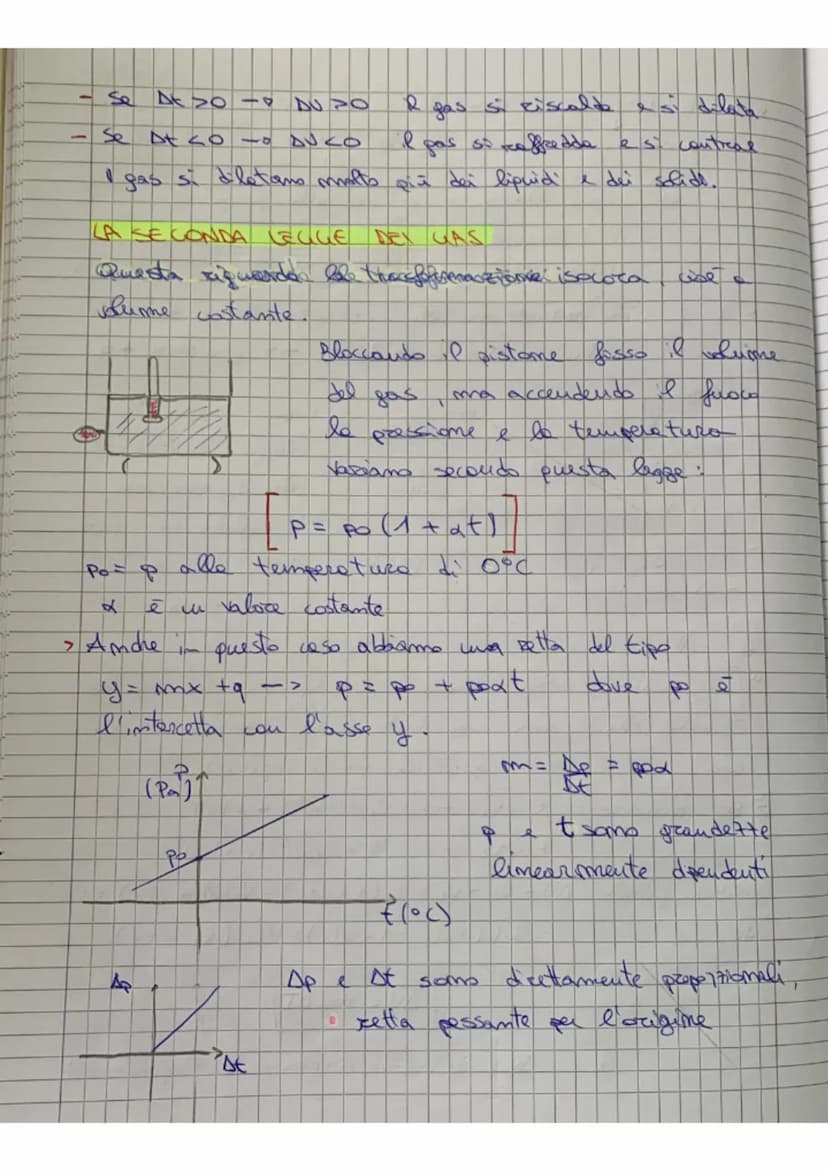 - Se Δt >0 → ΔV >0 Il gas si riscalda e si dilata
- Se Δt <0 → ΔV <0 Il gas si raffredda e si contrae
I gas si dilatano molto più dei liquidi e dei solidi.
LA SECONDA LEGGE DEI GAS
Questa riguarda la trasformazione isocora, cioè a
volume costante.
Bloccando il pistone fisso il volume
del gas, ma accendendo il fuoco
la pressione e la temperatura
variano secondo questa legge:
[p = po (1 + αt)]
po = p alla temperatura di 0°C
α è un valore costante
> Anche in questo caso abbiamo una retta del tipo
y = mx + q --> p = po + poαt dove po è
l'intercetta con l'asse y.
m = Δp/Δt = poα
p
(Pa)
p e t sono grandezze
po
linearmente dpendenti
t(°C)
Δp
Δp e Δt sono direttamente proporzionali,
retta passante per l'origine
Δt